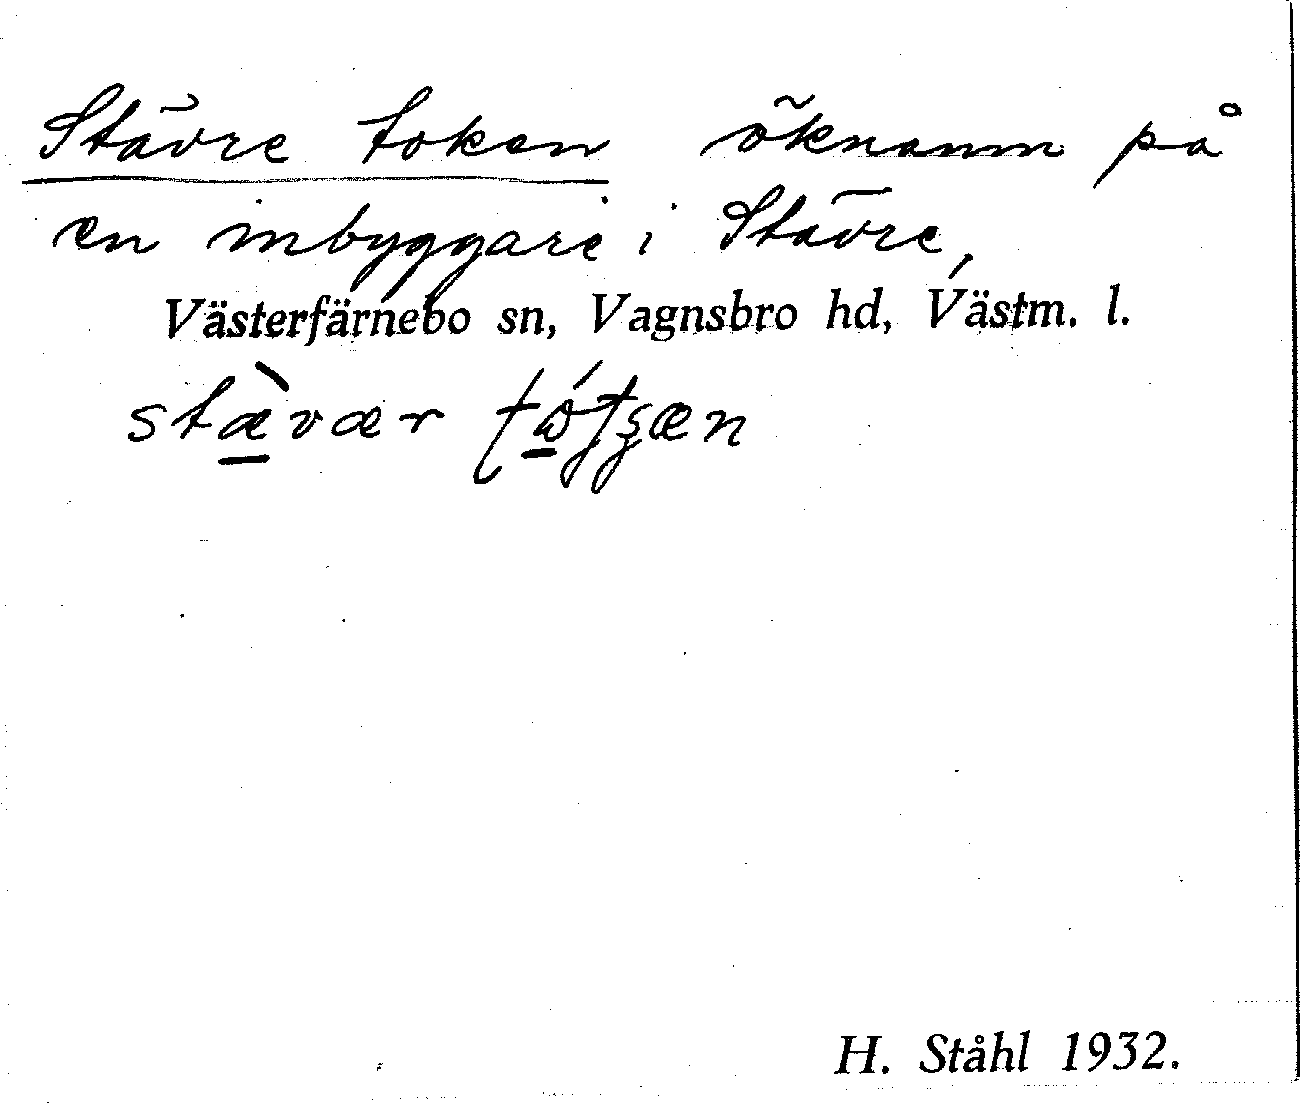 Stävre token öknamn på
en inbyggare i Stävre,
Västerfärnebo sn, Vagnsbro hd, Västm. l.
stæ̀vær
H. Ståhl 1932.